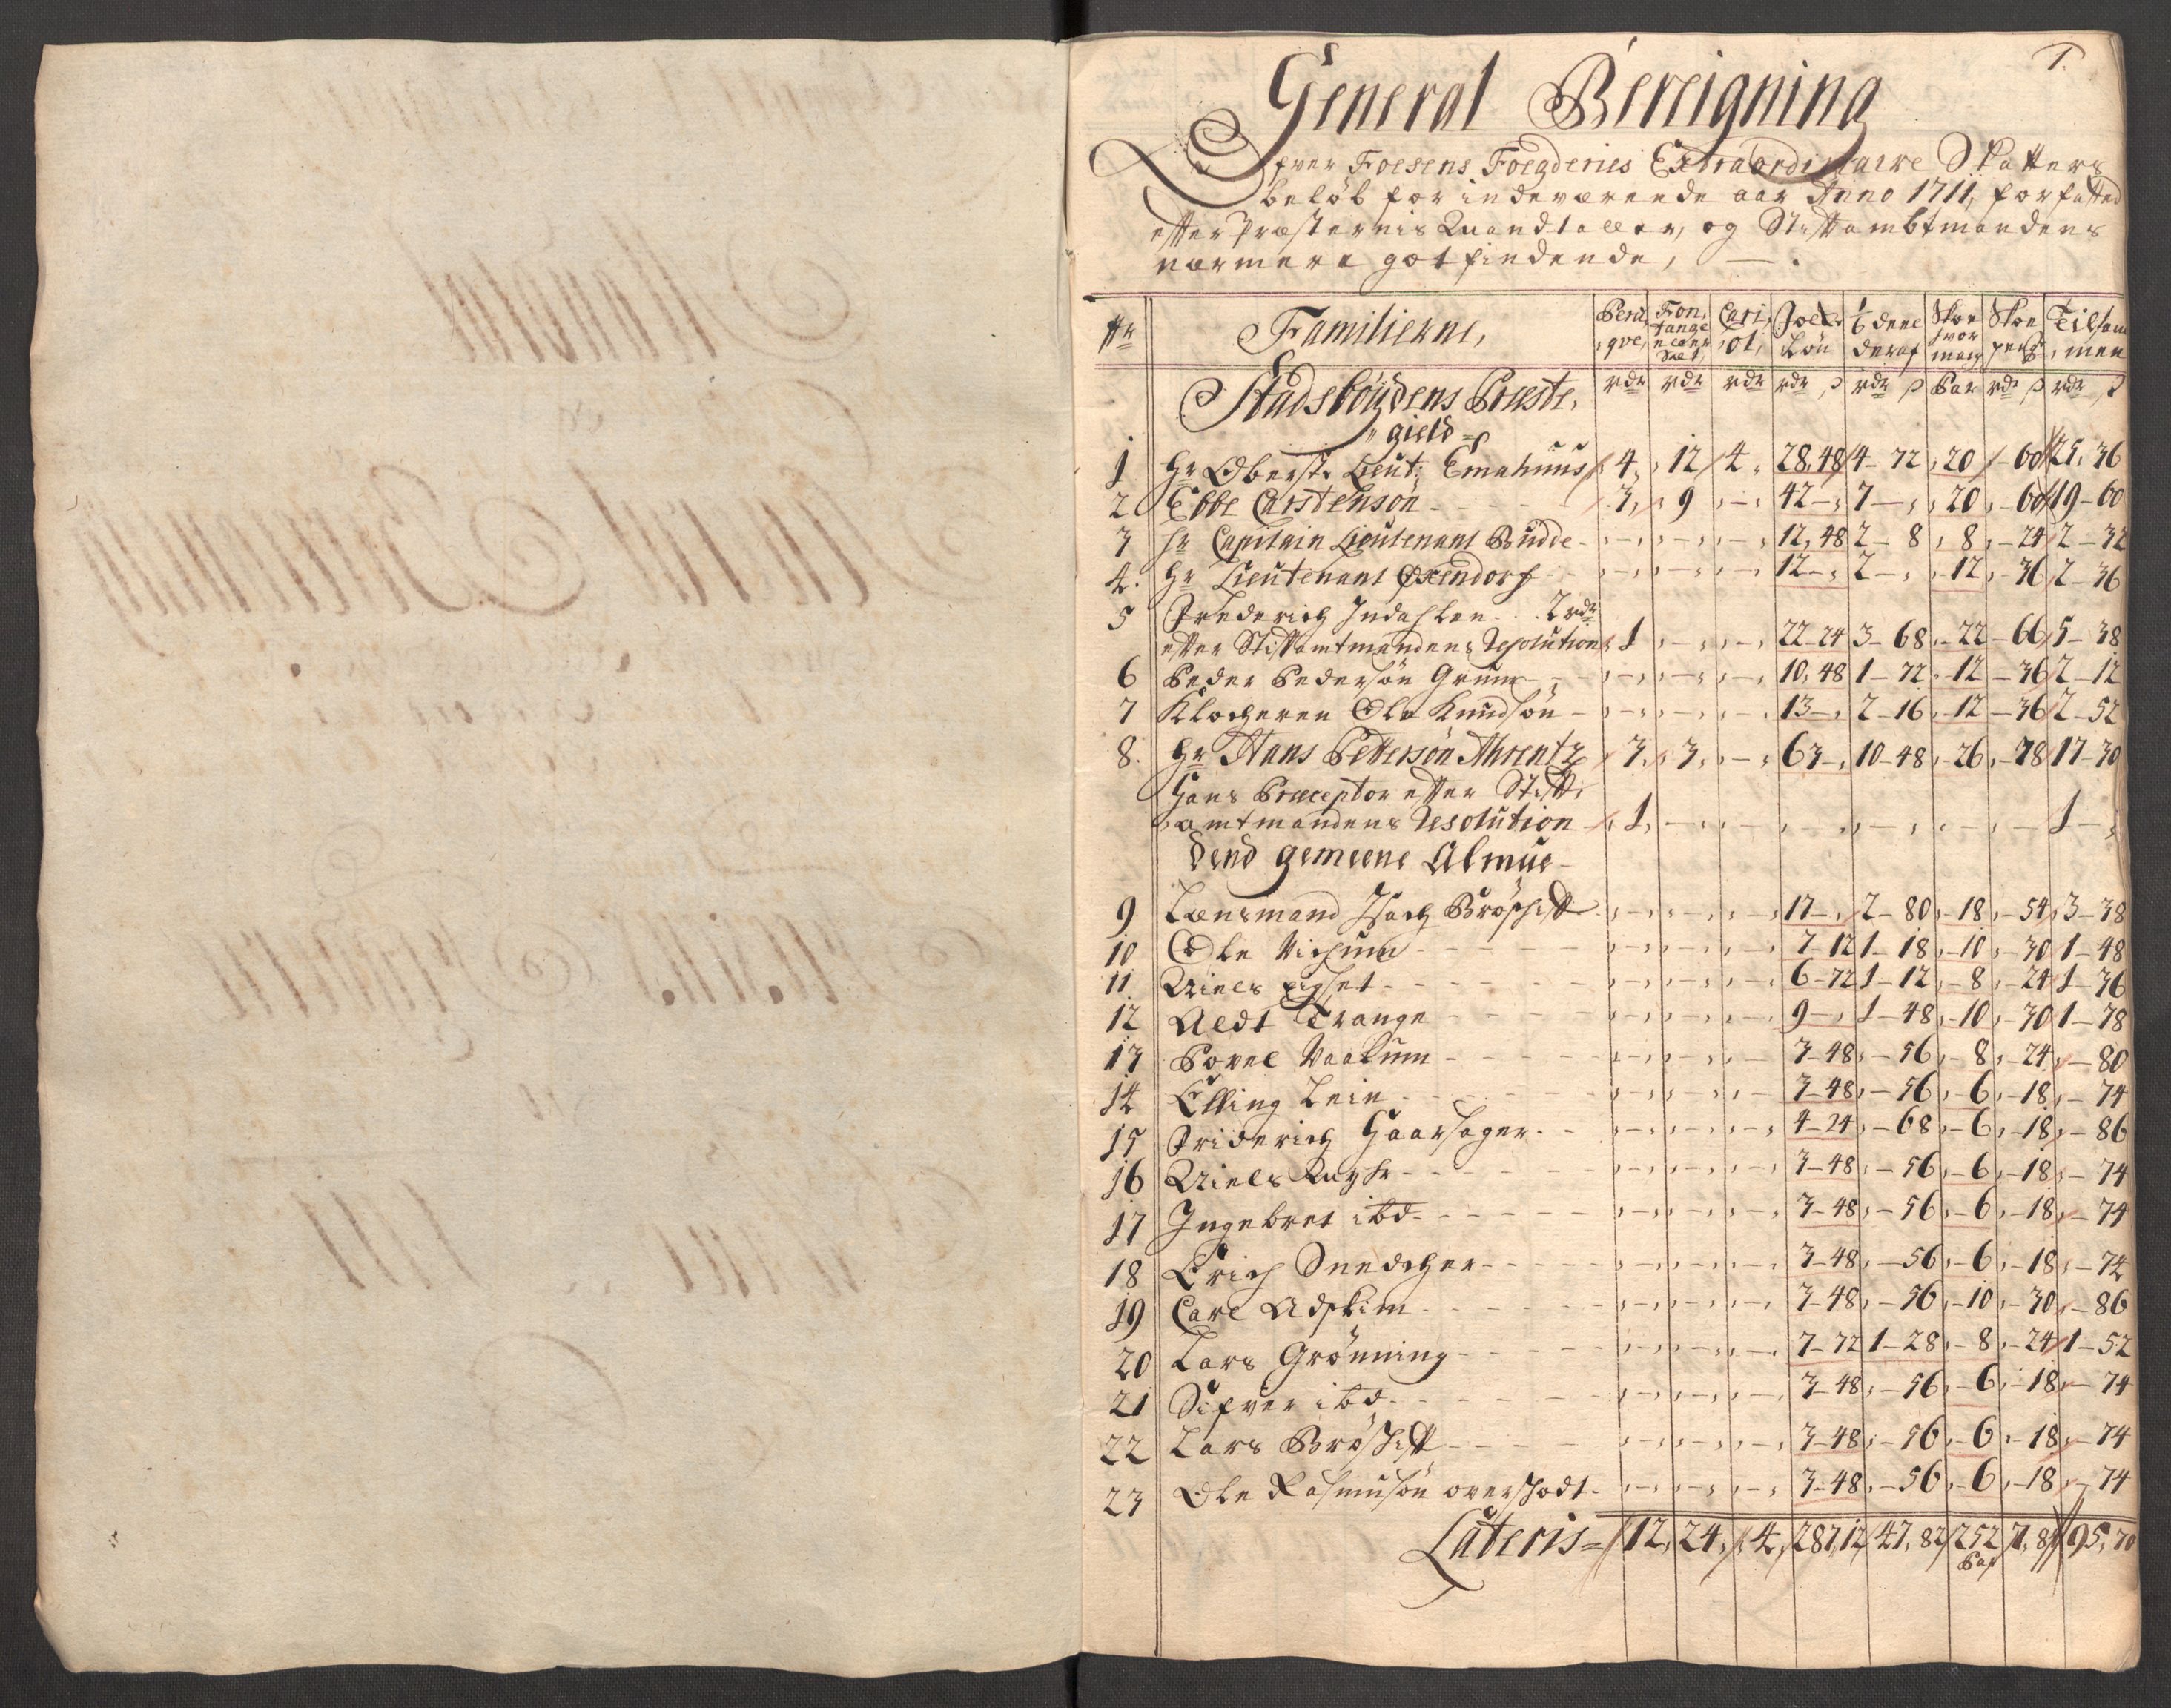 1.
General Bereigning
Ofver Foesens Foegderies Extraordinaire Skatters
beløb for indeværende aar Anno 1711, forfatted
efter Præsternis Mandtaller, og Stiftambtmandens
nærmere gotfindende,
Nr Familierne, Perüqve, Fontange eller Sæt, Cariol, Folke Løn 1/6 deel deraf Skoe par Skoe penge Tilsammen
rdr rdr rdr rdr ß rdr ß Par rdr ß rdr ß
Stadsböÿdens Præste,
gield
1 Hr Oberst. Lieut: Emahuus 4, 12 4, 28,48 4-72 20 -60 25,36
2 Ebbe Carstensøn 3, 9 - 42- 7- 20 -60 19-60
3 Hr Capitain Lieutenant Budde - - - 12,48 2-8 8 -24 2-32
4. Hr Lieutenant Oxendorf - - - 12- 2- 12 -36 2-36
5 Frederich Indahlen 2 rdr
efter Stiftamtmandens Resolution 1 - - 22-24 3-68 22 -66 5-38
6 Peder Pedersøn Grum - - - 10,48 1-72 12 -36 2-12
7 Klocheren Ole Knudsøn - - - 13- 2-16 12 -36 2-52
8. Hr Hans Pettersøn Ahrentz 3, 3, - 63- 10-48 26 -78 17-30
Hans Præceptor efter Stift,
amtmandens Resolution 1, - - - - - - 1-
Dend gemeene Almue
9 Lensmand Isach Brøshft - - - 17- 2-80 18 -54 3-38
10 Ole Vichum - - - 7-12 1-18 10 -30 1-48
11 Niels - - - 6-72 1-12 8 -24 1-36
12 Aldt Trange - - - 9- 1-48 10 -30 1-78
13 Povel Vaakum - - - 3-48 -56 8 -24 -80
14 Elling Lein - - - 3-48 -56 6 -18 -74
15 Friderich Haarsager - - - 4-24 -68 6 -18 -86
16 Niels - - - 3-48 -56 6 -18 -74
17 Ingebret ibd - - - 3-48 -56 6 -18 -74
18 Erich Snedcher - - - 3-48 -56 6 -18 -74
19 Carl Adskim - - - 3-48 -56 10 -30 -86
20 Lars Grønning - - - 7-72 1-28 8 -24 1-52
21 Sifver ibd - - - 3-48 -56 6 -18 -74
22 Lars Brøshft - - - 3-48 -56 6 -18 -74
23 Ole Rasmusøn overskodt - - - 3-48 -56 6 -18 -74
Lateris 12, 24, 4, 287,12 47,82 252 Par 7,84 95,70